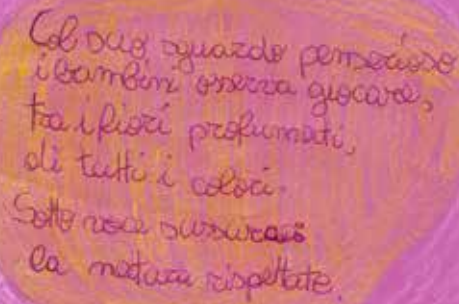 Col suo sguardo pensieroso
i bambini osserva giocare,
tra i fiori profumati,
di tutti i colori.
Sotto voce sussura
la natura rispettate.